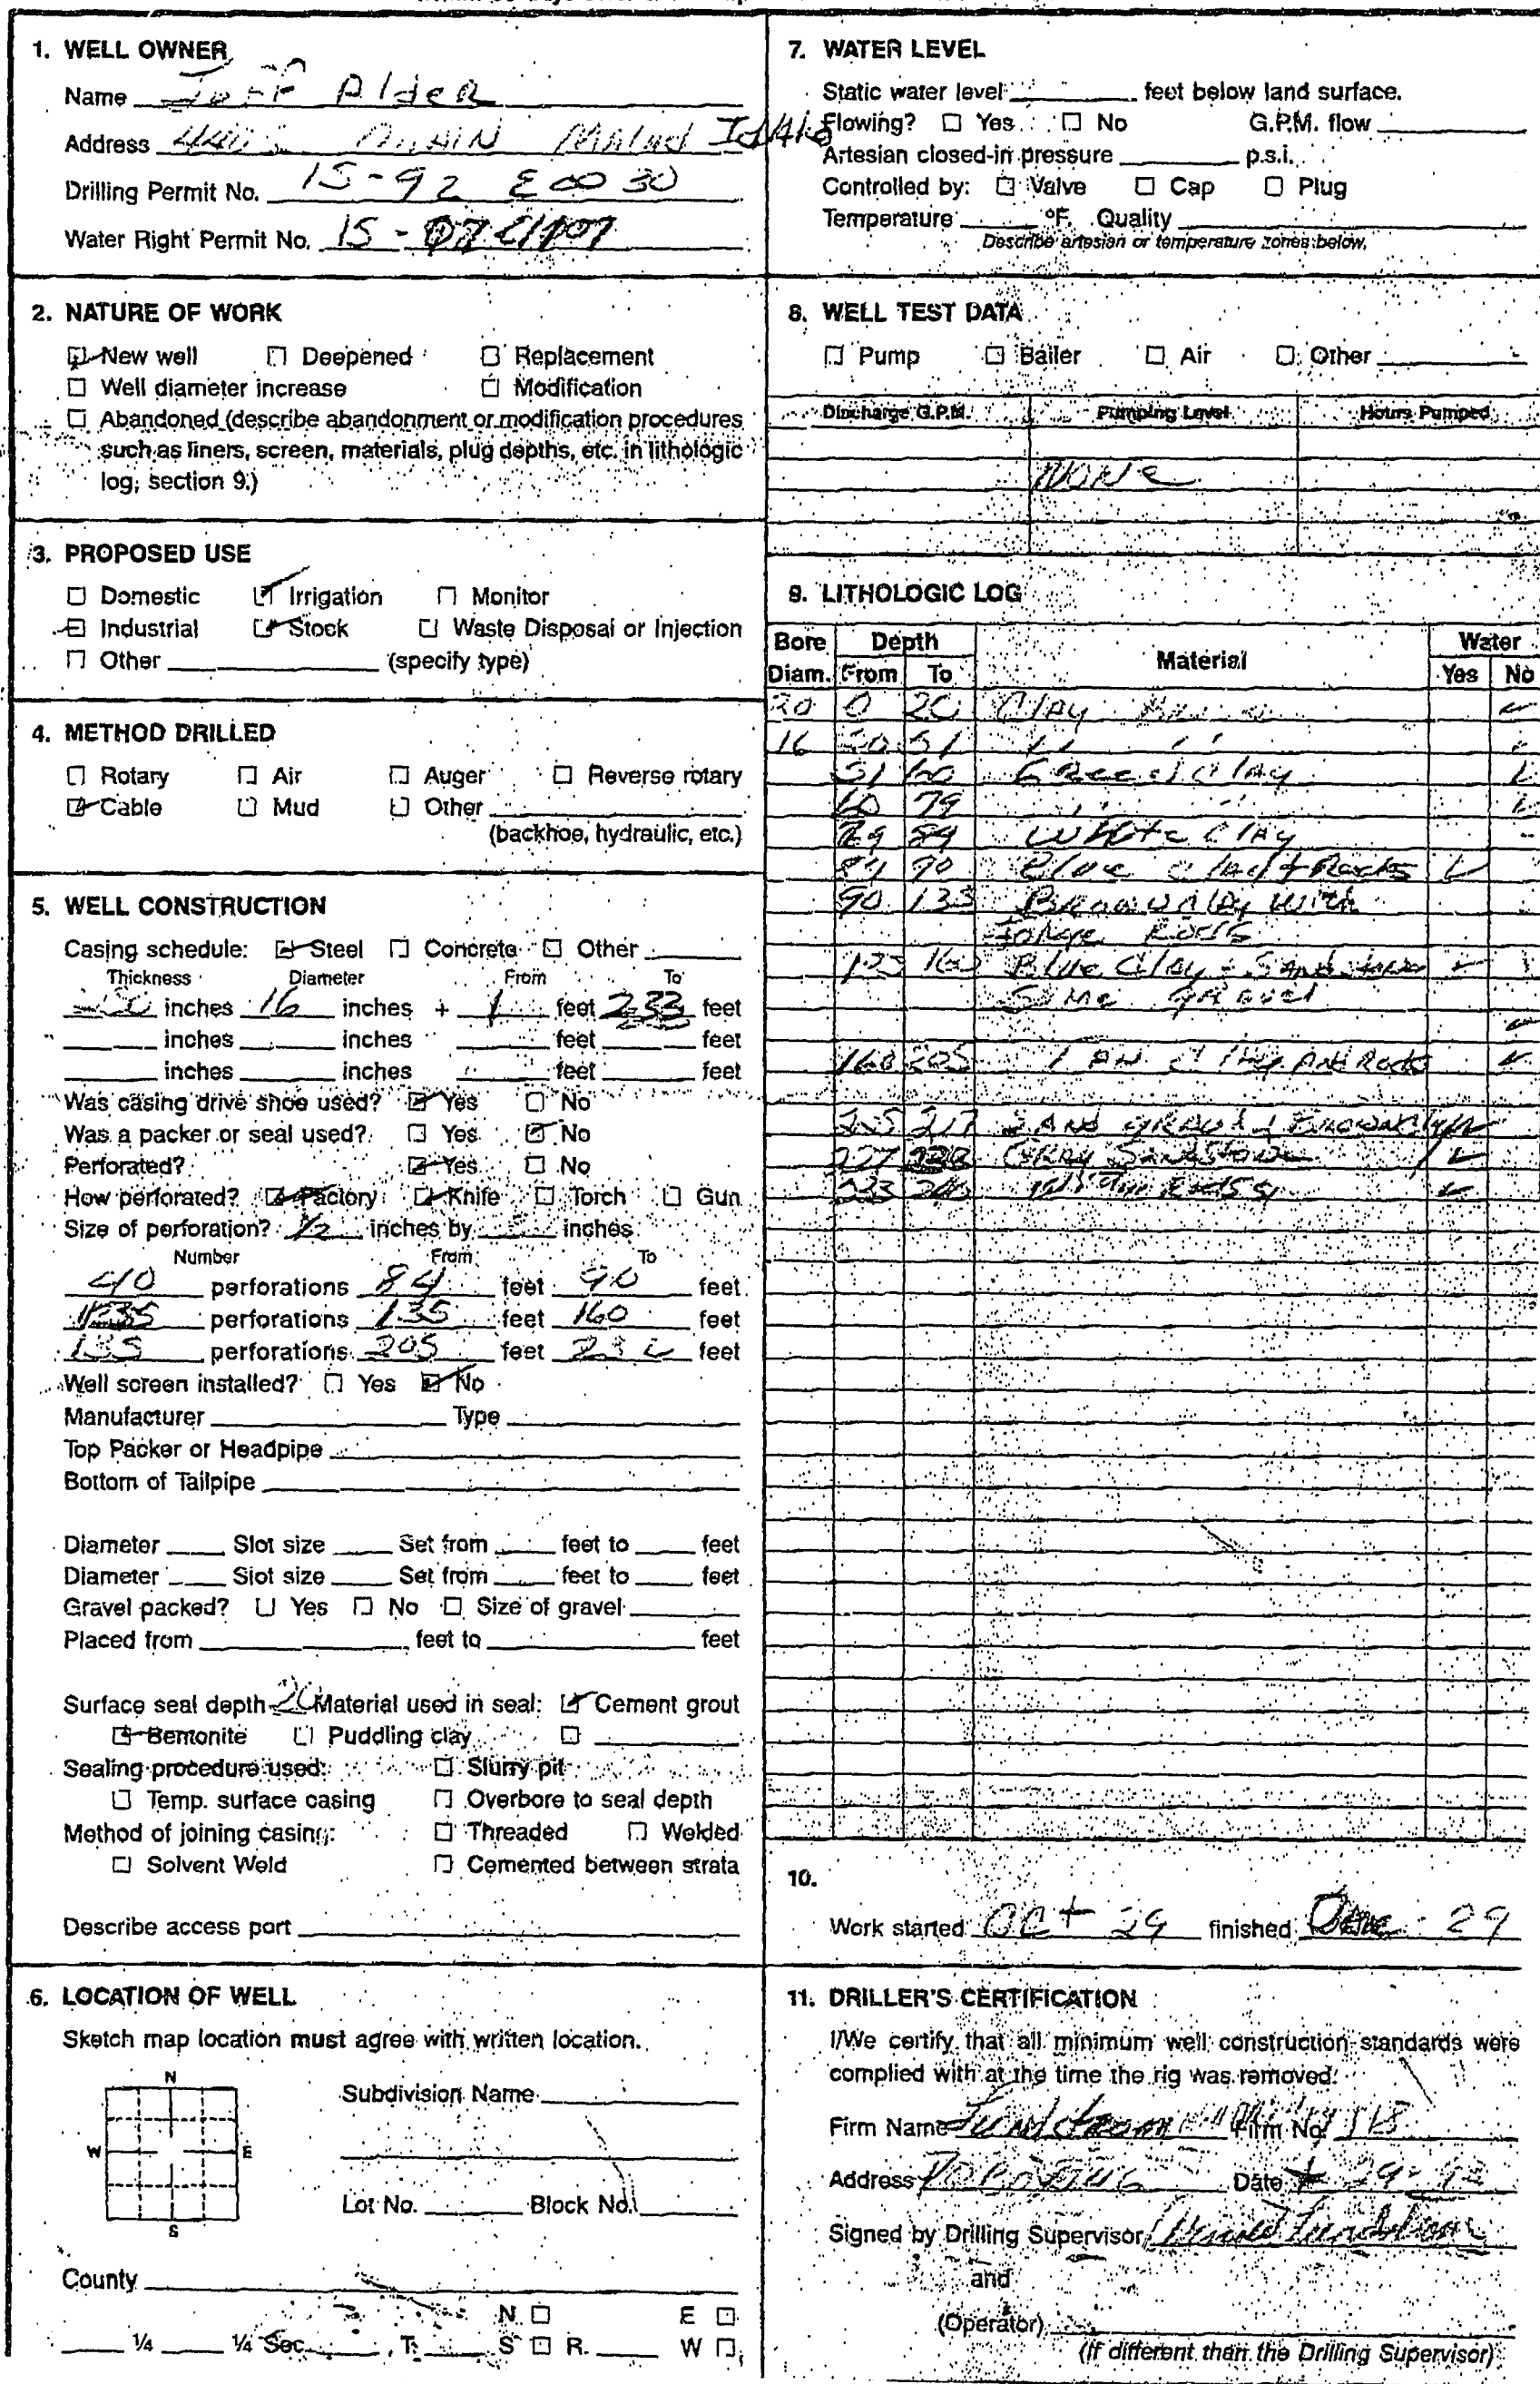 1. WELL OWNER
Name Jeff Alder
Address MAIN Malad Idaho
Drilling Permit No. 15-92 E 00 30
Water Right Permit No. 15 -
2. NATURE OF WORK
☑ New well ☐ Deepened ☐ Replacement
☐ Well diameter increase ☐ Modification
☐ Abandoned (describe abandonment or modification procedures
such as liners, screen, materials, plug depths, etc. in lithologic
log, section 9.)
3. PROPOSED USE
☐ Domestic ☑ Irrigation ☐ Monitor
☐ Industrial ☑ Stock ☐ Waste Disposal or Injection
☐ Other (specify type)
4. METHOD DRILLED
☐ Rotary ☐ Air ☐ Auger ☐ Reverse rotary
☑ Cable ☐ Mud ☐ Other
(backhoe, hydraulic, etc.)
5. WELL CONSTRUCTION
Casing schedule: ☑ Steel ☐ Concrete ☐ Other
Thickness Diameter From To
inches 16 inches + 1 feet 233 feet
inches inches feet feet
inches inches feet feet
Was casing drive shoe used? ☑ Yes ☐ No
Was a packer or seal used? ☐ Yes ☑ No
Perforated? ☑ Yes ☐ No
How perforated? ☑ Factory ☑ Knife ☐ Torch ☐ Gun
Size of perforation? 1/2 inches by inches
Number From To
40 perforations 84 feet 90 feet
perforations 135 feet 160 feet
135 perforations 205 feet feet
Well screen installed? ☐ Yes ☑ No
Manufacturer Type
Top Packer or Headpipe
Bottom of Tailpipe
Diameter Slot size Set from feet to feet
Diameter Slot size Set from feet to feet
Gravel packed? ☐ Yes ☐ No ☐ Size of gravel
Placed from feet to feet
Surface seal depth 20 Material used in seal: ☑ Cement grout
☑ Bentonite ☐ Puddling clay ☐
Sealing procedure used: ☐ Slurry pit
☐ Temp. surface casing ☐ Overbore to seal depth
Method of joining casing: ☐ Threaded ☐ Welded
☐ Solvent Weld ☐ Cemented between strata
Describe access port
6. LOCATION OF WELL
Sketch map location must agree with written location.
N
W E
S
Subdivision Name
Lot No. Block No.
County
N ☐ E ☐
1/4 1/4 Sec. , T. S ☐ R. W ☐
7. WATER LEVEL
Static water level feet below land surface.
Flowing? ☐ Yes ☐ No G.P.M. flow
Artesian closed-in pressure p.s.i.
Controlled by: ☐ Valve ☐ Cap ☐ Plug
Temperature °F. Quality
Describe artesian or temperature zones below.
8. WELL TEST DATA
☐ Pump ☐ Bailer ☐ Air ☐ Other
Discharge G.P.M. Pumping Level Hours Pumped
None
9. LITHOLOGIC LOG
Bore Depth Water
Diam. From To Material Yes No
20 0 20 Clay
16 20 51 " "
51 60 Green Clay
60 79 " "
79 84 White Clay
84 90 Blue Clay + Rocks
90 135 Brown Clay with
Large Rocks
135 160 Blue Clay + Sandstone
Some gravel
160 205 Tan Clay And Rocks
205 227 Sand gravel + Brown Clay
227 233 Gray Sandstone
233 240
10.
Work started Oct 29 finished Dec 29
11. DRILLER'S CERTIFICATION
I/We certify that all minimum well construction standards were
complied with at the time the rig was removed.
Firm Name Lundstrom Firm No.
Address Date
Signed by Drilling Supervisor Lundstrom
and
(Operator)
(If different than the Drilling Supervisor)